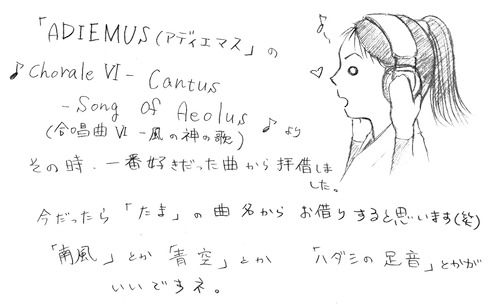 「ADIEMUS(アディエマス」の
♪Chorale Ⅵ - Cantus
- Song Of Aeolus
(合唱曲Ⅵ -風の神の歌) ♪より
その時、一番好きだった曲から拝借しま
した。
今だったら「たま」の曲名からお借りすると思います(笑)
「南風」とか「青空」とか「ハダシの足音」とかが
いいですネ。